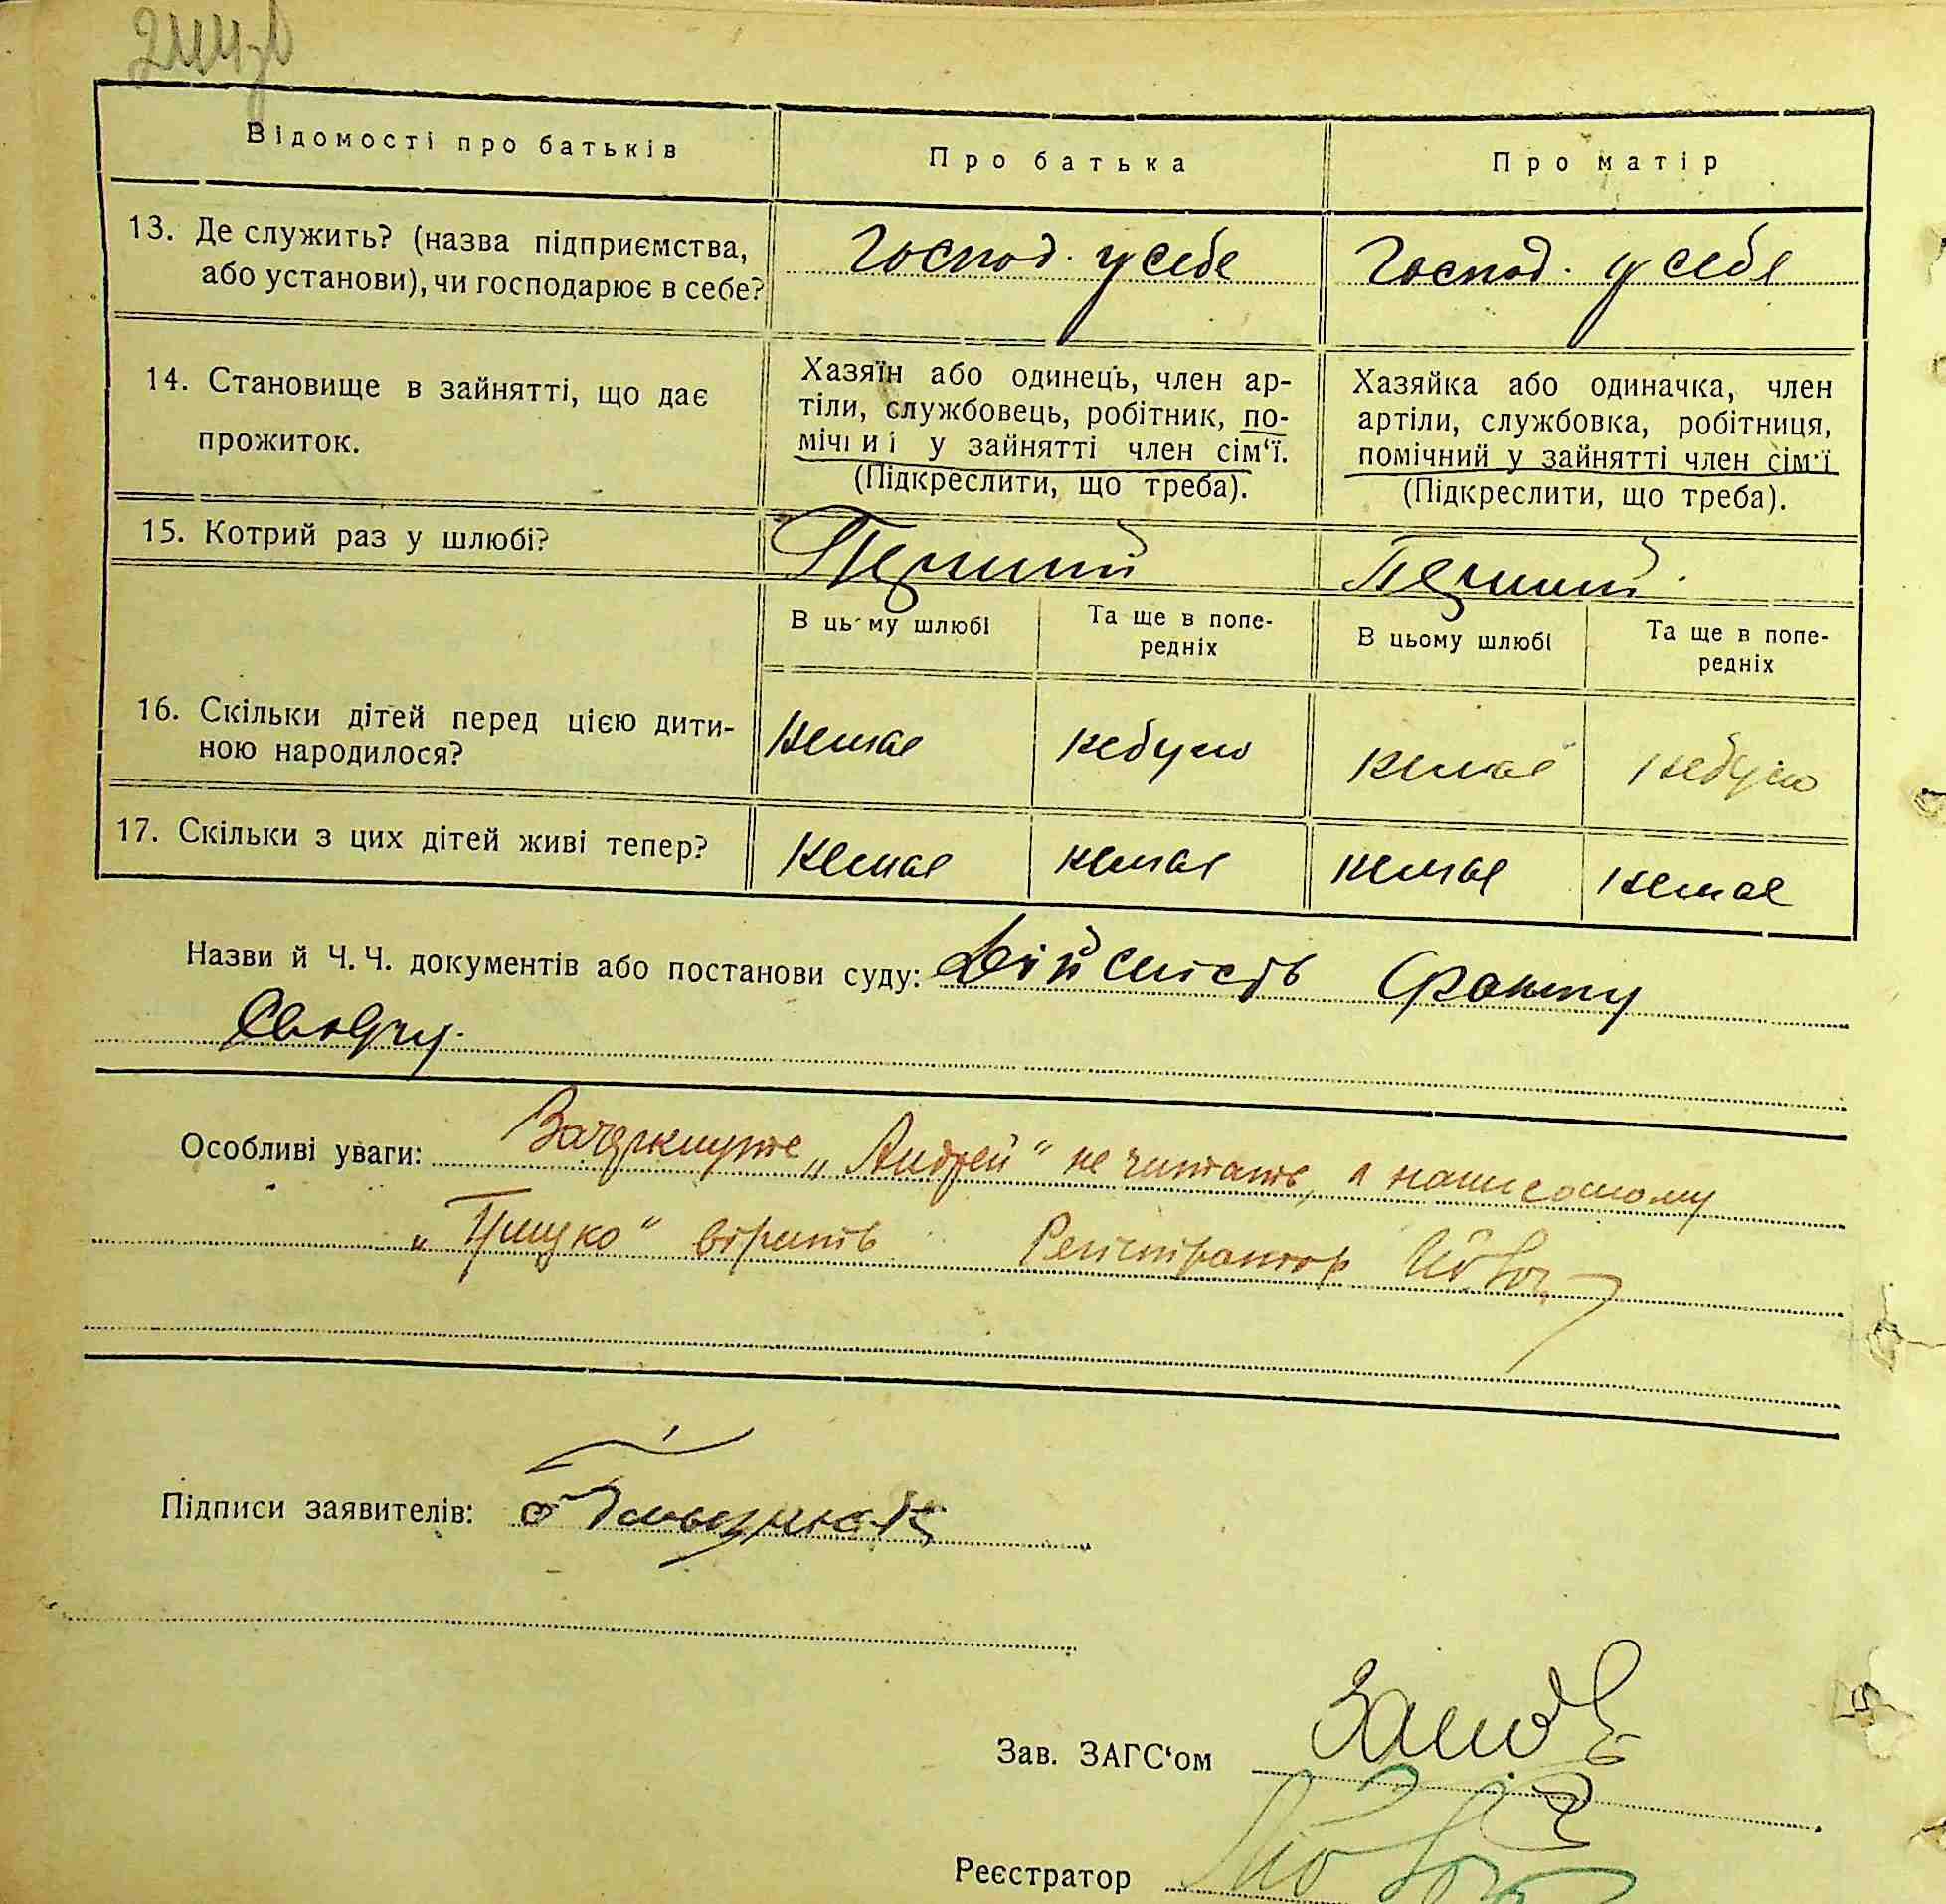 Відомості про батьків Про батька Про матір
13. Де служить? (назва підприємства, або установи), чи господарює в себе? Господ. у себе Господ. у себе
14. Становище в зайнятті, що дає прожиток.
Хазяїн або одинець, член ар-
тіли, службовець, робітник, по-
мічний у зайнятті член сім'ї.
(Підкреслити, що треба).
Хазяйка або одиначка, член
артіли, службовка, робітниця,
помічний у зайнятті член сім'ї
(Підкреслити, що треба).
15. Котрий раз у шлюбі? Перший Перший
В цьому шлюбі Та ще в попе-
редніх В цьому шлюбі Та ще в попе-
редніх
16. Скільки дітей перед цією дити-
ною народилося? немає небуло немає небуло
17. Скільки з цих дітей живі тепер? немає немає немає немає
Назви й Ч. Ч. документів або постанови суду: Дійсність факту
Свідчу.
Особливі уваги: Зачеркнуте „Андрей" не читать, а написаному
„Грицко" вірить Регистратор
Підписи заявителів:
Зав. ЗАГС'ом
Реєстратор